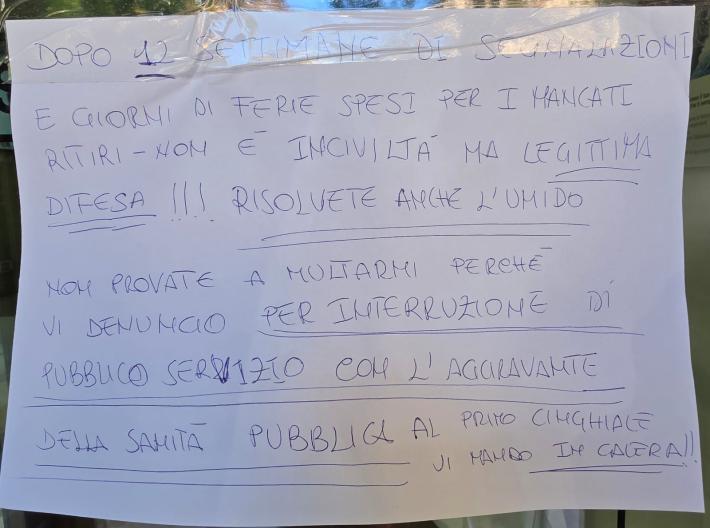 DOPO 12 SETTIMANE DI SEGNALAZIONI
E GIORNI DI FERIE SPESI PER I MANCATI
RITIRI - NON È INCIVILTÀ MA LEGITTIMA
DIFESA !!! RISOLVETE ANCHE L'UMIDO
NON PROVATE A MULTARMI PERCHÉ
VI DENUNCIO PER INTERRUZIONE DI
PUBBLICO SERVIZIO CON L'AGGRAVANTE
DELLA SANITÀ PUBBLICA AL PRIMO CINGHIALE
VI MANDO IN GALERA!!